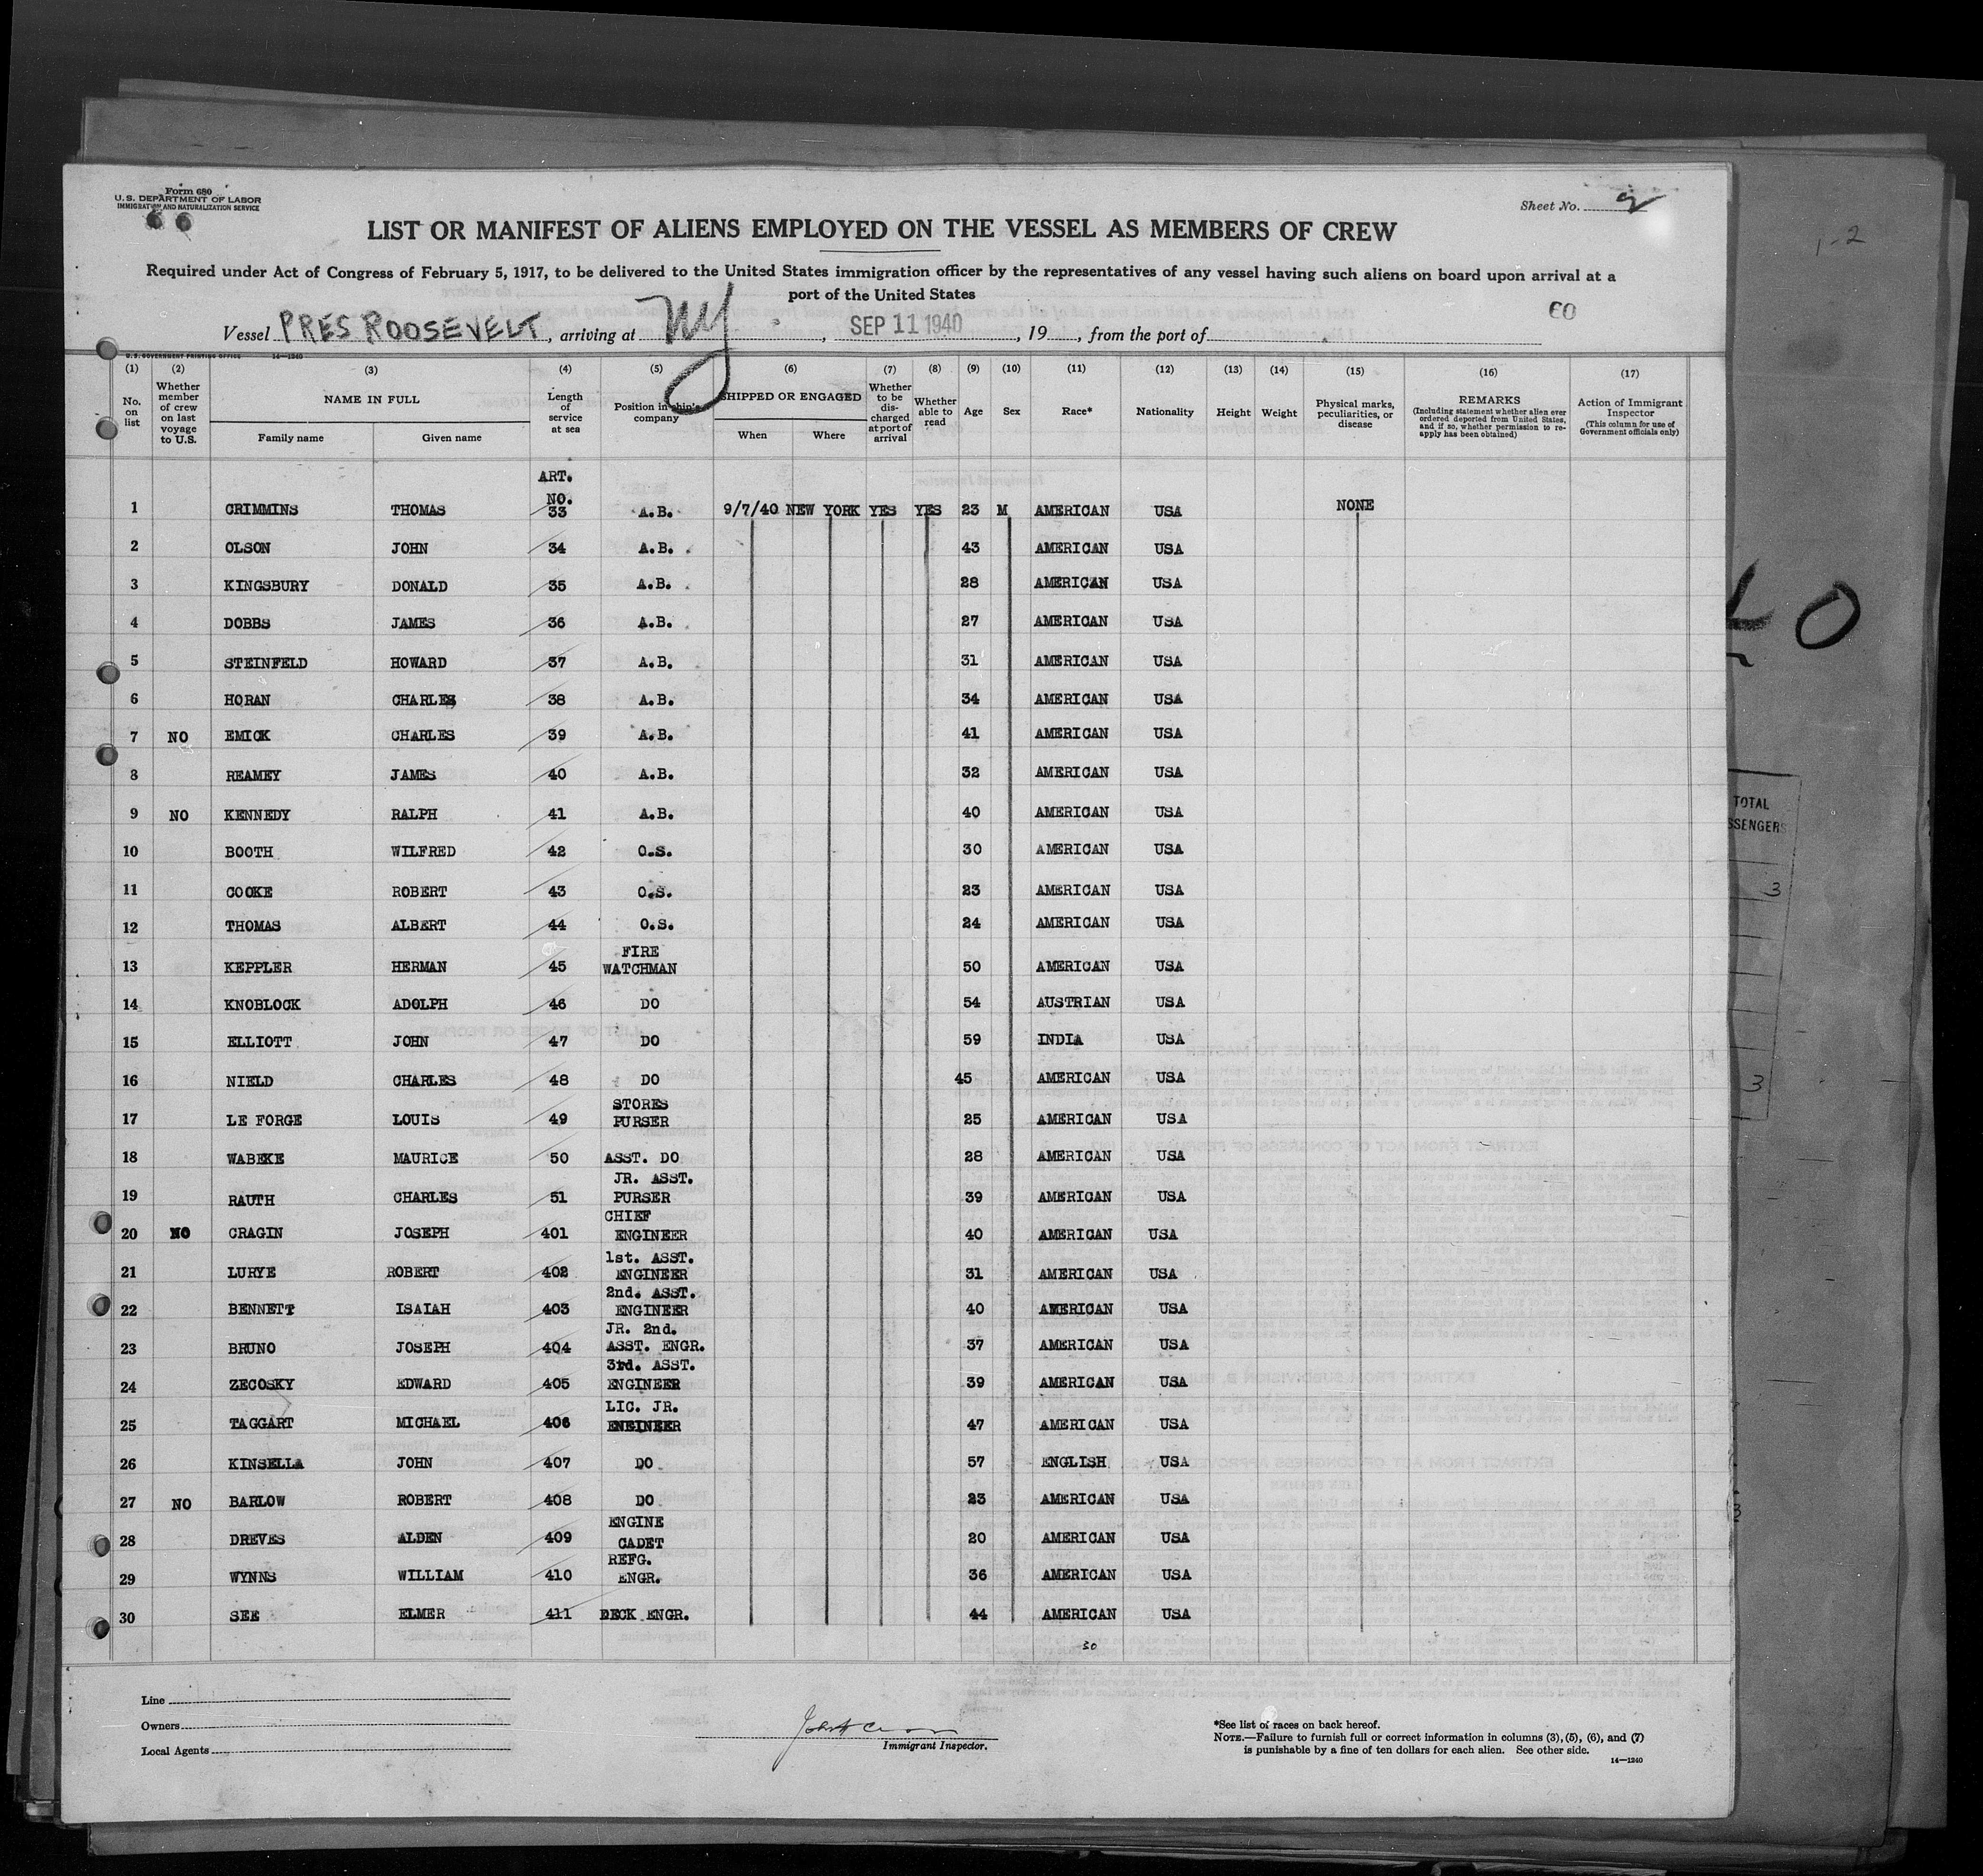 Form 680
U. S. DEPARTMENT OF LABOR
IMMIGRATION AND NATURALIZATION SERVICE
Sheet No. 2
1-2
LIST OR MANIFEST OF ALIENS EMPLOYED ON THE VESSEL AS MEMBERS OF CREW
Required under Act of Congress of February 5, 1917, to be delivered to the United States immigration officer by the representatives of any vessel having such aliens on board upon arrival at a
port of the United States
Vessel PRES ROOSEVELT, arriving at NY, SEP 11 1940, 19, from the port of
U. S. GOVERNMENT PRINTING OFFICE 14—1240
(1) (2) (3) (4) (5) (6) (7) (8) (9) (10) (11) (12) (13) (14) (15) (16) (17)
No. on list
Whether member of crew on last voyage to U.S.
NAME IN FULL
Family name Given name
Length of service at sea
Position in ship's company
SHIPPED OR ENGAGED
When Where
Whether to be discharged at port of arrival
Whether able to read
Age
Sex
Race*
Nationality
Height
Weight
Physical marks, peculiarities, or disease
REMARKS
(Including statement whether alien ever ordered deported from United States, and if so, whether permission to reapply has been obtained)
Action of Immigrant Inspector
(This column for use of Government officials only)
ART. NO.
1 CRIMMINS THOMAS 33 A.B. 9/7/40 NEW YORK YES YES 23 M AMERICAN USA NONE
2 OLSON JOHN 34 A.B. 43 AMERICAN USA
3 KINGSBURY DONALD 35 A.B. 28 AMERICAN USA
4 DOBBS JAMES 36 A.B. 27 AMERICAN USA
5 STEINFELD HOWARD 37 A.B. 31 AMERICAN USA
6 HORAN CHARLES 38 A.B. 34 AMERICAN USA
7 NO EMICK CHARLES 39 A.B. 41 AMERICAN USA
8 REAMEY JAMES 40 A.B. 32 AMERICAN USA
9 NO KENNEDY RALPH 41 A.B. 40 AMERICAN USA
10 BOOTH WILFRED 42 O.S. 30 AMERICAN USA
11 COOKE ROBERT 43 O.S. 23 AMERICAN USA
12 THOMAS ALBERT 44 O.S. 24 AMERICAN USA
13 KEPPLER HERMAN 45 FIRE WATCHMAN 50 AMERICAN USA
14 KNOBLOCK ADOLPH 46 DO 54 AUSTRIAN USA
15 ELLIOTT JOHN 47 DO 59 INDIA USA
16 NIELD CHARLES 48 DO 45 AMERICAN USA
17 LE FORGE LOUIS 49 STORES PURSER 25 AMERICAN USA
18 WABEKE MAURICE 50 ASST. DO 28 AMERICAN USA
19 RAUTH CHARLES 51 JR. ASST. PURSER 39 AMERICAN USA
20 NO CRAGIN JOSEPH 401 CHIEF ENGINEER 40 AMERICAN USA
21 LURYE ROBERT 402 1st. ASST. ENGINEER 31 AMERICAN USA
22 BENNETT ISAIAH 403 2nd. ASST. ENGINEER 40 AMERICAN USA
23 BRUNO JOSEPH 404 JR. 2nd. ASST. ENGR. 37 AMERICAN USA
24 ZECOSKY EDWARD 405 3rd. ASST. ENGINEER 39 AMERICAN USA
25 TAGGART MICHAEL 406 LIC. JR. ENGINEER 47 AMERICAN USA
26 KINSELLA JOHN 407 DO 57 ENGLISH USA
27 NO BARLOW ROBERT 408 DO 23 AMERICAN USA
28 DREVES ALDEN 409 ENGINE CADET 20 AMERICAN USA
29 WYNNS WILLIAM 410 REFG. ENGR. 36 AMERICAN USA
30 SEE ELMER 411 DECK ENGR. 44 AMERICAN USA
30
TOTAL
SSENGERS
3
3
Line
Owners
Local Agents
Immigrant Inspector.
*See list of races on back hereof.
NOTE.—Failure to furnish full or correct information in columns (3), (5), (6), and (7)
is punishable by a fine of ten dollars for each alien. See other side.
14—1240